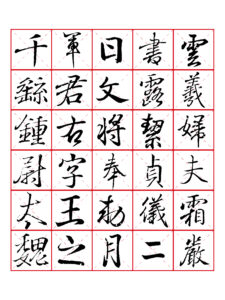 千軍日書雲
繇君文露羲
鍾古将絜婦
尉字奉貞夫
太王勅儀霜
魏之月二嚴